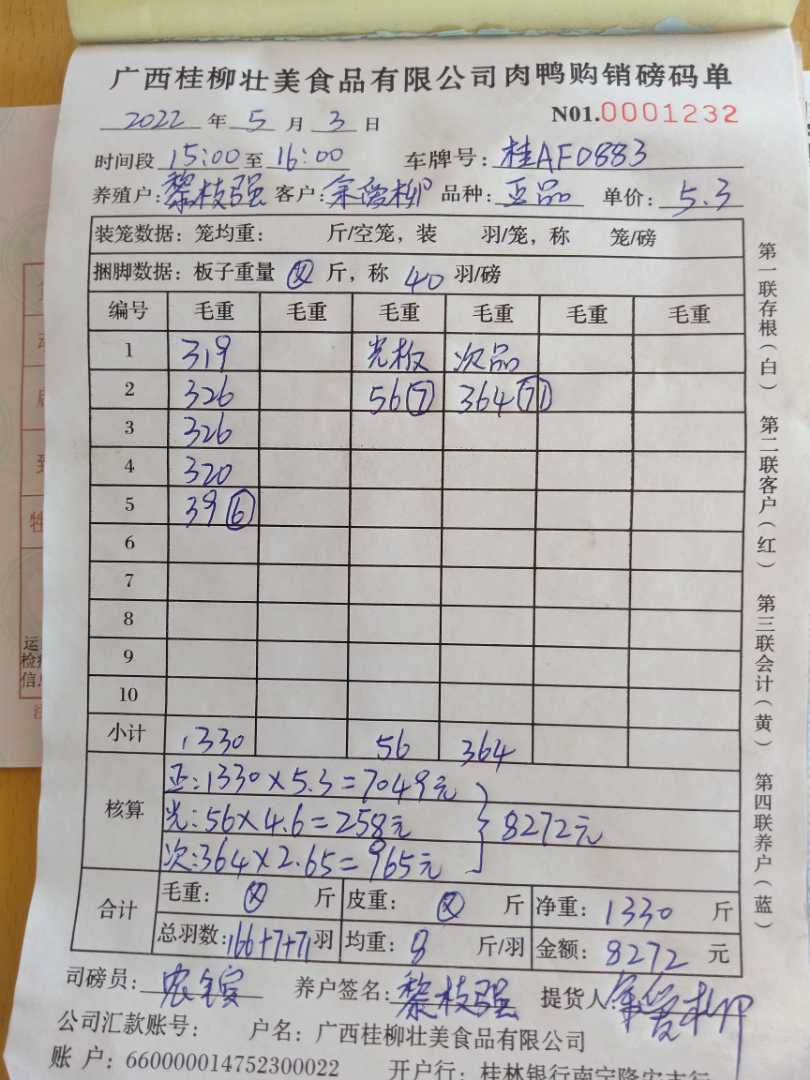 广西桂柳壮美食品有限公司肉鸭购销磅码单
2022 年 5 月 3 日 N01.0001232
时间段 15:00 至 16:00 车牌号: 桂AF0883
养殖户: 黎枝强 客户: 余爱柳 品种: 正品 单价: 5.3
装笼数据: 笼均重: 斤/空笼, 装 羽/笼, 称 笼/磅
捆脚数据: 板子重量 斤, 称 40 羽/磅
编号 毛重 毛重 毛重 毛重 毛重 毛重
1 319 光板 次品
2 326 56⑦ 364(71)
3 326
4 320
5 39⑥
6
7
8
9
10
小计 1330 56 364
核算
正:1330×5.3=7049元
光:56×4.6=258元 } 8272元
次:364×2.65=965元
合计
毛重: 斤 皮重: 斤 净重: 1330 斤
总羽数: 166+7+71 羽 均重: 8 斤/羽 金额: 8272 元
司磅员: 养户签名: 黎枝强 提货人: 余爱柳
公司汇款账号: 户名: 广西桂柳壮美食品有限公司
账 户: 660000014752300022 开户行: 桂林银行南宁隆安支行
第一联存根(白)
第二联客户(红)
第三联会计(黄)
第四联养户(蓝)